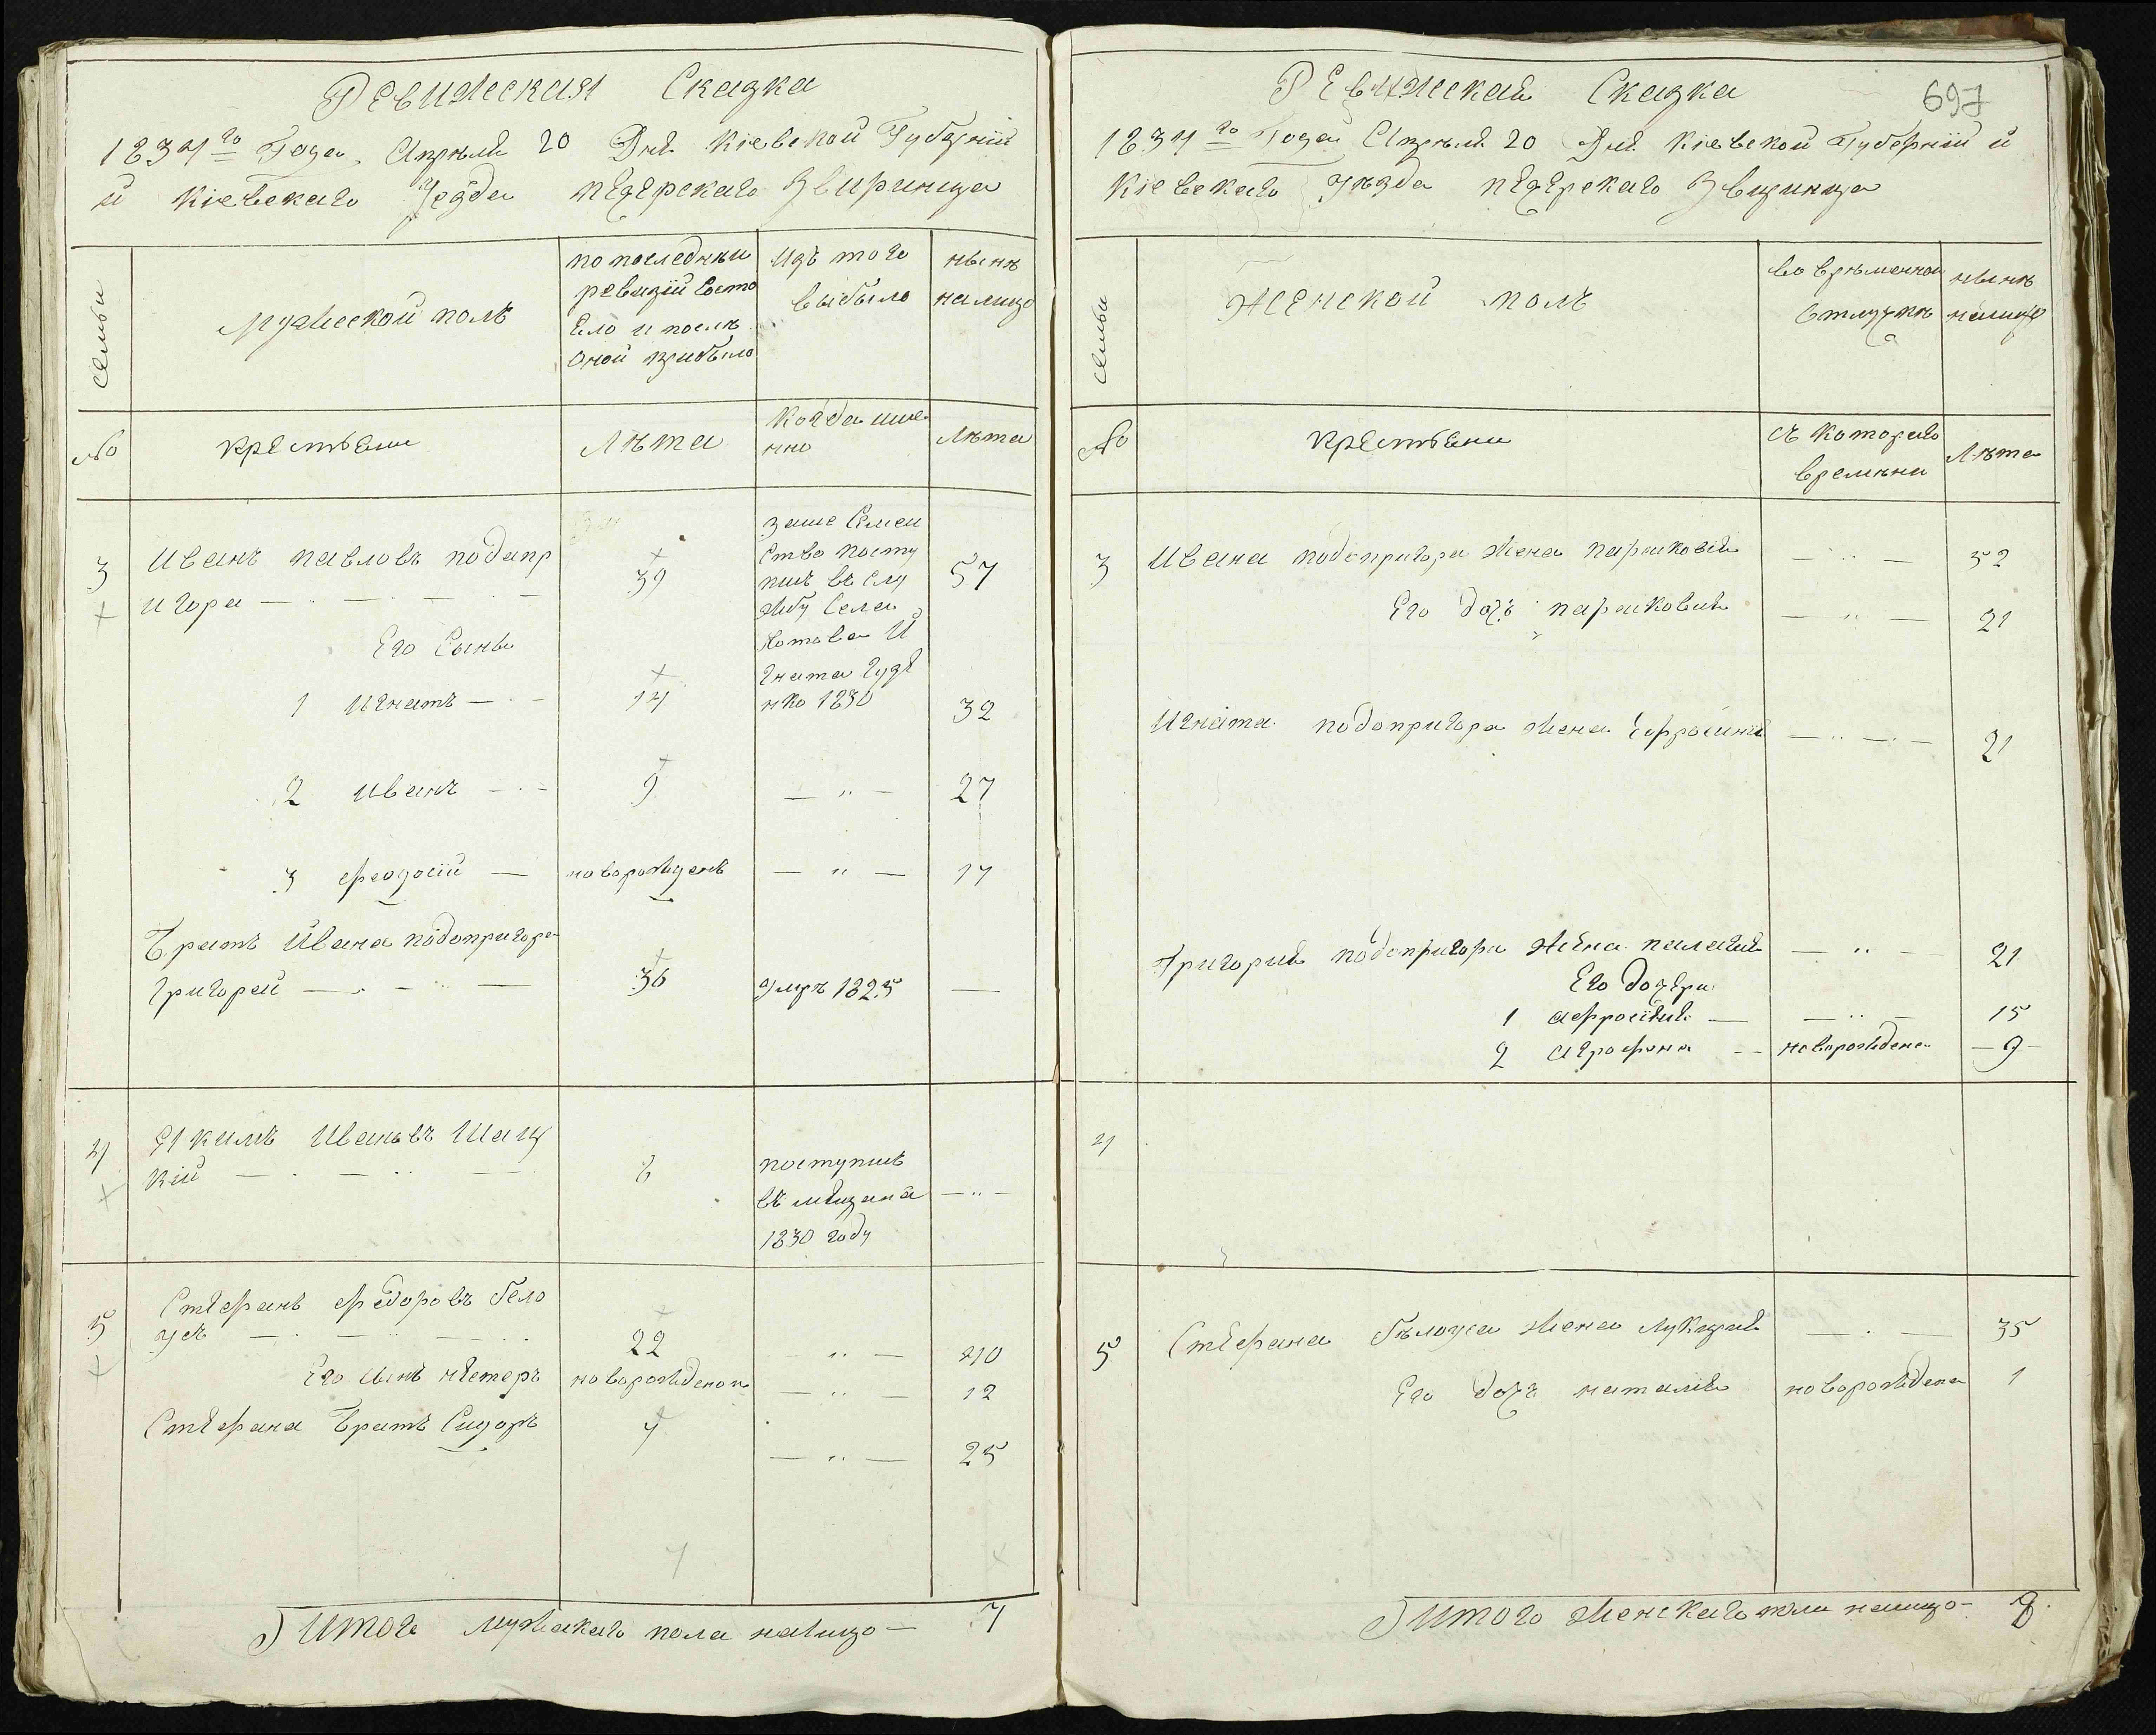 Ревижская Сказка
1834го Года, Апреля 20 Дня Кіевской Губерніи
и Кіевскаго Уезда печерскаго Звиринца
семьи
мужеской полъ
по последнеи
ревизіи Состо
Яло и после
Оной прибыло
Изъ того
выбыло
ныне
налицо
№
крестьяни
Лѣта
Когда име
нно
Лѣта
3
Иванъ павловъ подопр
игора
39
заше Семеи
Ство посту
пилъ въ слу
жбу
И
гната
1830
57
Его Сынъи
1 Игнатъ
14
32
2 Иванъ
9
27
3 феодосіи
новорожденъ
17
Братъ Ивана подопригора
Григореи
36
Умръ 1825
4
Якимъ Ивановъ Шац
кіи
8
поступилъ
въ мещана
1830 году
5
Стефанъ федоровъ бело
усъ
22
40
Его сынъ нестеръ
новорожденои
12
Стефана братъ Сидоръ
7
25
Итого мужскаго пола налицо
7
Ревижская Сказка
697
1834го Года Апреля 20 Дня Кіевской Губерніи и
Кіевскаго Уезда печерскаго Звиринца
семьи
Женской полъ
во временной
отлучке
ныне
налицо
№
крестьяни
съ котораго
времени
Лѣта
3
Ивана подопригора жена параковия
52
Его дочъ параковия
21
Игната подопригора жена Ефросиния
21
Григория подопригора жена палагия
21
Его дочери
1 афросиния
15
2 аграфена
новорождена
9
4
5
Стефана белоуса жена Лукирия
35
Его дочъ наталия
новорождена
1
Итого женскаго пола налицо
8